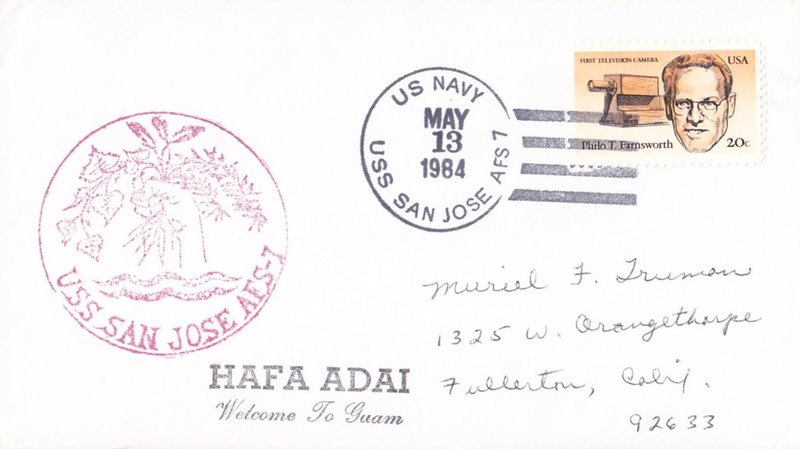 FIRST TELEVISION CAMERA
USA
Philo T. Farnsworth
20c
US NAVY
MAY
13
1984
USS SAN JOSE AFS 7
USS SAN JOSE AFS-7
HAFA ADAI
Welcome To Guam
Muriel F. Truman
1325 W. Orangethorpe
Fullerton, Calif.
92633